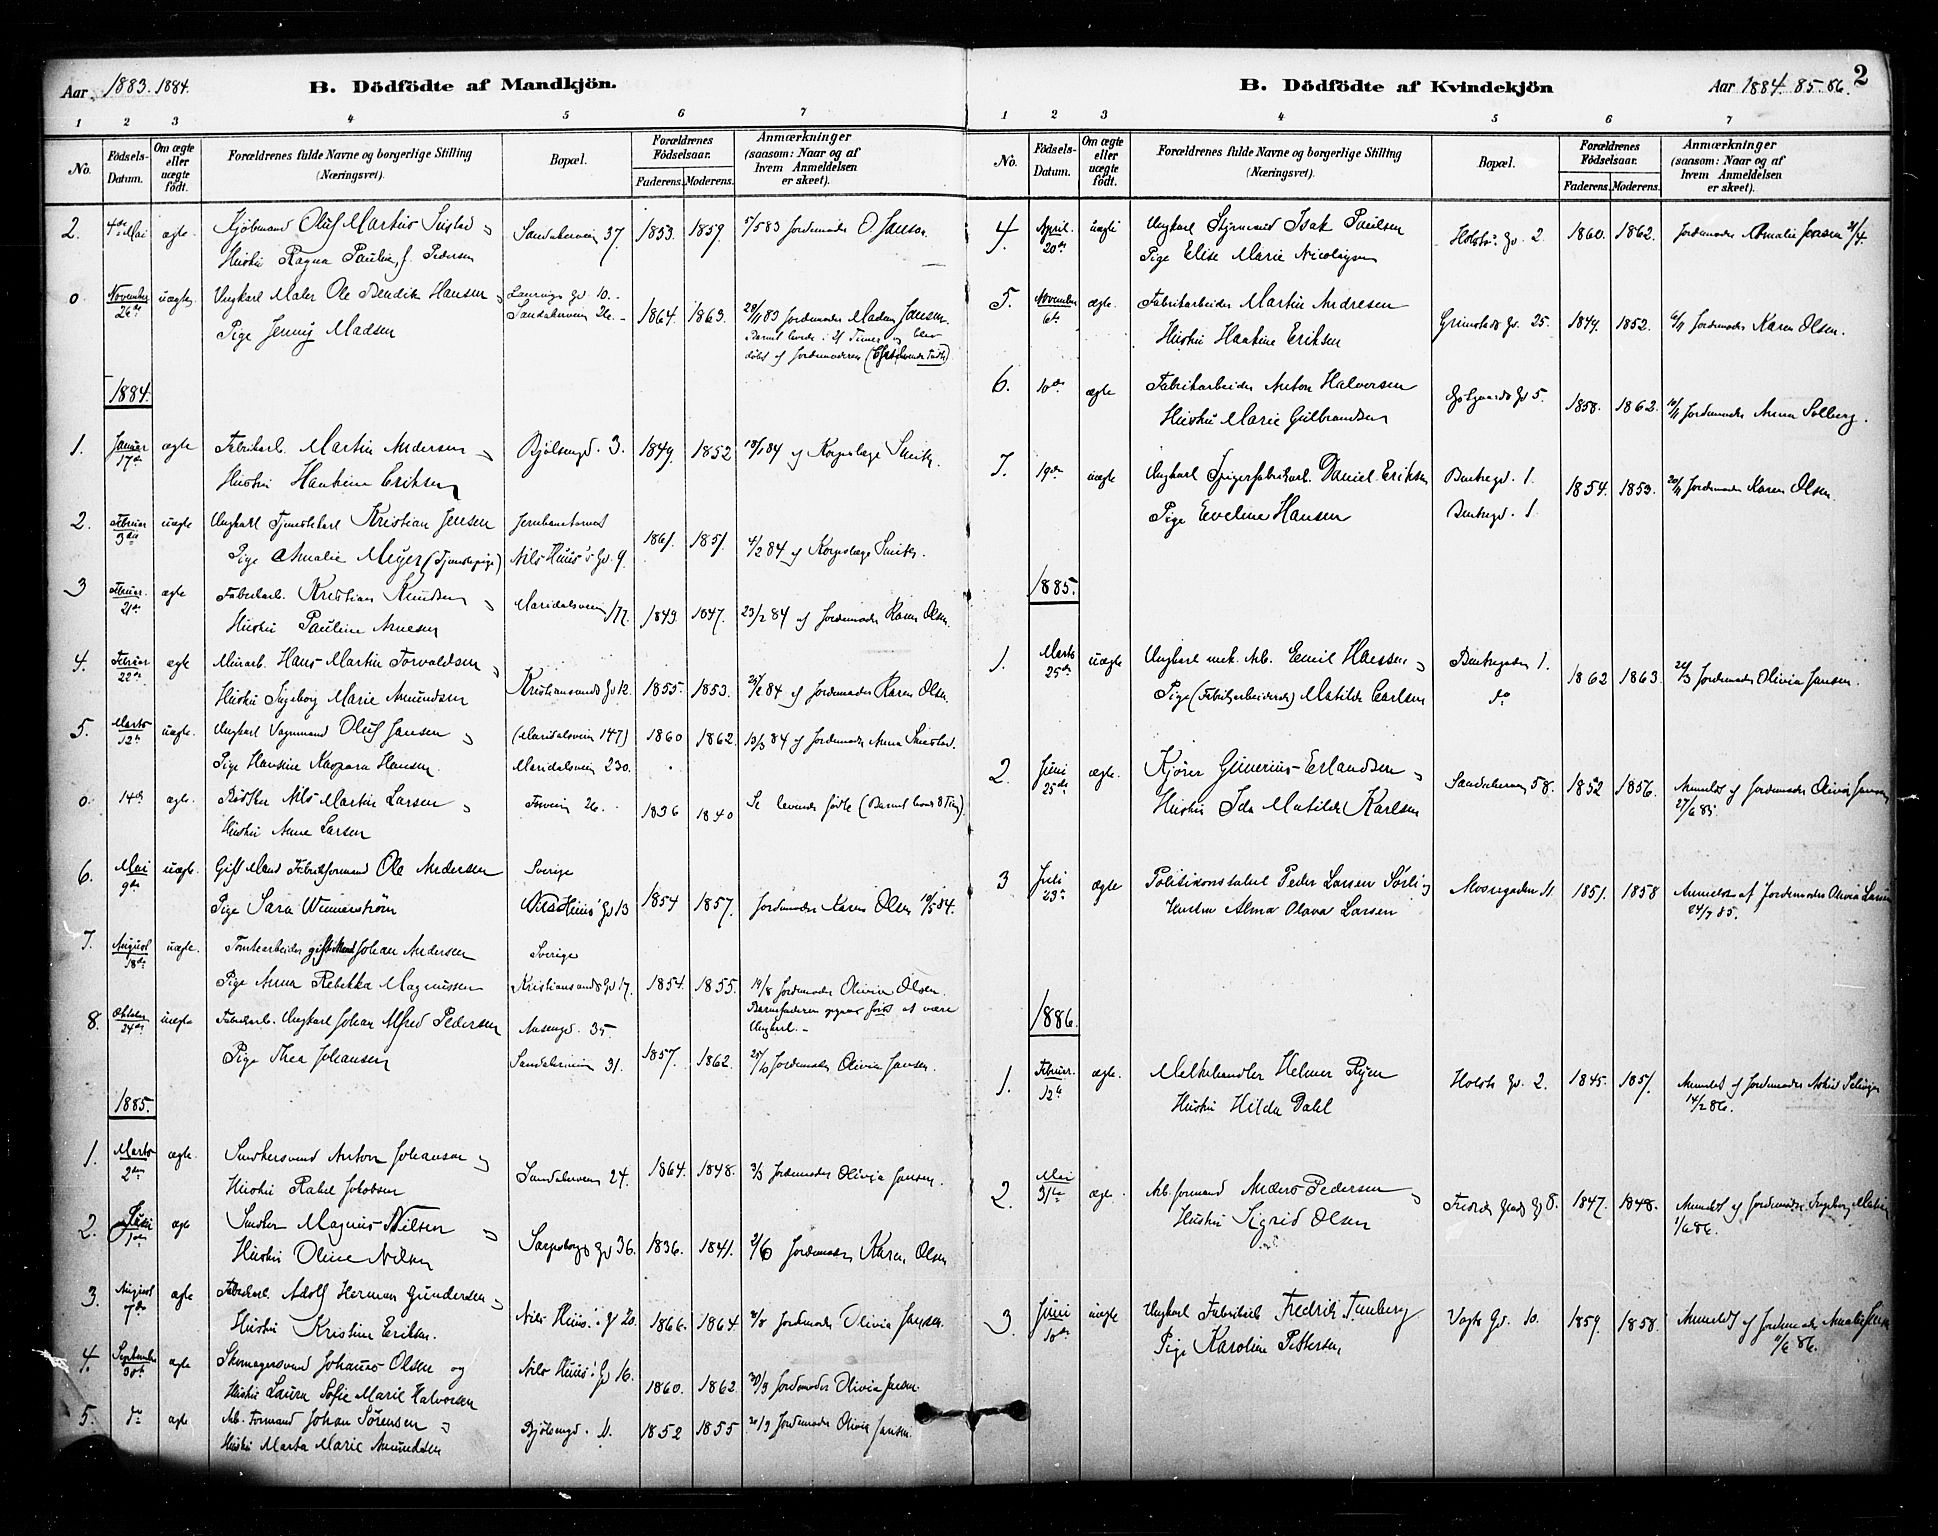 Aar 1883. 1884.
B. Dödfödte af Mandkjön.
1 2 3 4 5 6 7
No.
Födsels-Datum.
Om ægte eller uægte födt.
Forældrenes fulde Navne og borgerlige Stilling
(Næringsvei).
Bopæl.
Forældrenes Födselsaar.
Faderens. Moderens.
Anmærkninger
(saasom: Naar og af
hvem Anmeldelsen
er skeet).
2. 4de Mai ægte Oluf Martin 37. 1853. 1859. 5/5 83 Jordemoder O. Jansen
Hustru Ragna Pauline, f. Pedersen
0 November 26de uægte Ungkarl Maler Ole Bendik Hansen Gd. 10. 1864. 1863. Jordemoder Madam Jansen.
Pige Jenny Madsen Sandakerveien 26.
1884.
1. Januar 17de ægte Fabrikarb. Martin Andersen Bjølsengd. 3. 1849. 1852
Hustru Eriksen
2. Februar 3die uægte Ungkarl Tjenestekarl Kristian Jensen 1861. 1851. 4/2 84
Pige Amalie Meyer (Tjenestepige) Nils Huus's Gd. 9.
3 Februar 21de ægte Fabrikarb. Kristian Knudsen Maridalsveien 177. 1849 1847. 23/2 84 af Jordemoder Karen Olsen.
Hustru Pauline Arnesen
4. Februar 22de ægte Murarb. Hans Martin Torvaldsen Kristiansunds Gd 12. 1855. 1853. af Jordemoder Karen Olsen.
Hustru Ingeborg Marie Amundsen
5. Marts 12te uægte. Ungkarl Vognmand Oluf Jansen (Maridalsveien 147) 1860 1862. 13/3 84 af Jordemoder Anna
Pige Kaspara Hansen. Maridalsveien 230.
0 14de ægte. Nils Martin Larsen 26. 1836 1840 Se levende fødte
Hustru Anne Larsen
6. Mai 9de uægte. Gift Mand Fabrikformand Ole Andersen Sverige 1854 1857. Jordemoder Karen Olsen 10/5 84.
Pige Sara Wennerstrøm Nils Huus' Gd 13
7. August 18de uægte. Tomtearbeider gift Mand Johan Andersen Sverige
Pige Anna Rebekka Magnussen Kristiansands Gd 17. 1854. 1855. 19/8 Jordemoder Olivia Olsen.
Barnefaderen opgaves først at være Ungkarl.
8. Oktober 24de uægte Fabrikarb. Ungkarl Johan Alfred Pedersen Aasengd. 35
Pige Thea Johansen Sandakerveien 31. 1857. 1862. 25/10 Jordemoder Olivia Jansen.
1885.
1. Marts 2den ægte. Snedkersvend Anton Johansen Sandakerveien 24. 1864. 1848. 3/3 Jordemoder Olivia Jansen.
Hustru Rakel Jakobsen
2. Juni 1ste ægte Magnus Nilsen Sarpsborgs Gd 36. 1836. 1841. 2/6 Jordemoder Karen Olsen
Hustru Oline Nilsen
3. August 7de ægte Fabrikarb. Adolf Herman Gundersen Nils Huus's g 20. 1866. 1864. Jordemoder Olivia Jansen
Hustru Kristine Eriksen.
4. September 30de ægte Skomagersvend Johannes Olsen og Nils Huus' Gd 16. 1860. 1862. 30/9 Jordemoder Olivia Jansen.
Hustru Laura Sofie Marie Halvorsen
5. do ægte Arb. Formand Johan Sørensen Bjølsengd. 11. 1852 1855 Jordemoder Olivia Jansen.
Hustru Marta Marie Amundsen
B. Dödfödte af Kvindekjön
Aar 1884. 85. 86. 2
1 2 3 4 5 6 7
No.
Födsels-Datum.
Om ægte eller uægte födt.
Forældrenes fulde Navne og borgerlige Stilling
(Næringsvei).
Bopæl.
Forældrenes Födselsaar.
Faderens. Moderens.
Anmærkninger
(saasom: Naar og af
hvem Anmeldelsen
er skeet).
4. April 20de uægte Ungkarl Styrmand Isak Paulsen Holsts Gd. 2. 1860. 1862. Jordemoder Amalie Jensen 21/4
Pige Elise Marie Nicolaysen
5. November 6te ægte. Fabrikarbeider Martin Andresen Grimstads Gd. 25. 1849. 1852. Jordemoder Karen Olsen.
Hustru Eriksen
6. 10de ægte Fabrikarbeider Anton Halvorsen Gd 5. 1858. 1862. Jordemoder Anna Solberg.
Hustru Marie Gulbrandsen
7. 19de uægte Ungkarl Spigerfabrikarb. Daniel Eriksen Bentsegd. 1. 1854. 1853. 20/11 Jordemoder Karen Olsen.
Pige Eveline Hansen Bentsegd. 1.
1885.
1. Marts 25de uægte Ungkarl mek. Arb. Emil Hanssen Bentsegaden 1. 1862 1863. Jordemoder Olivia Jansen.
Pige (Fabrikarbeiderske) Matilde Carlsen do
2. Juni 25de ægte. Kjører Gunerius Erlandsen Sandakerveien 58. 1852 1856. Anmeldt af Jordemoder Olivia Jansen
Hustru Ida Matilde Karlsen 27/6 85.
3 Juli 23de ægte Politikonstabel Peder Larsen Sørli Mossegaden 11 1851. 1858 Anmeldt af Jordemoder Olivia Larsen
Hustru Alma Olava Larsen 24/7 85.
1886.
1. Februar. 12te ægte. Melkehandler Helmer Ryen Holsts Gd. 2. 1845. 1851. Anmeldt af Jordemoder
Hustru Hilda Dahl 14/2 86.
2. Mai 31te ægte. Arb. formand Anders Pedersen 8. 1847. 1848. Anmeldt af Jordemoder Ingeborg
Hustru Sigrid Olsen 1/6 86.
3 Juni 10de uægte Ungkarl Fabrikarb. Fredrik Tanberg Vogts Gd. 10. 1859. 1858. Anmeldt af Jordemoder Amalie Jensen
Pige Karoline Pettersen 11/6 86.